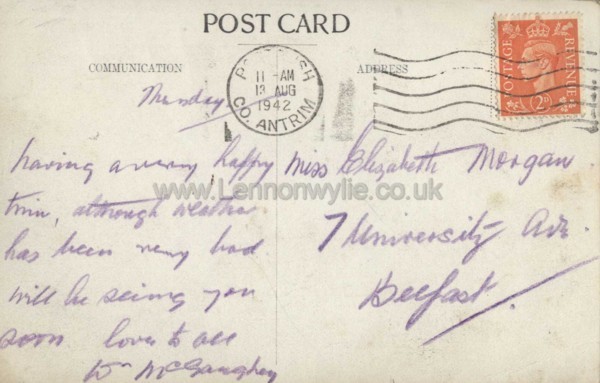 POST CARD
COMMUNICATION
ADDRESS
PORTRUSH
11 - AM
13 AUG
1942
CO. ANTRIM
POSTAGE REVENUE
2D
having a very happy
time, although weather
has been very bad
will be seing you
soon love to all
Wm McGaughey
Miss Elizabeth Morgan
7 University Ave.
Belfast.
www.Lennonwylie.co.uk